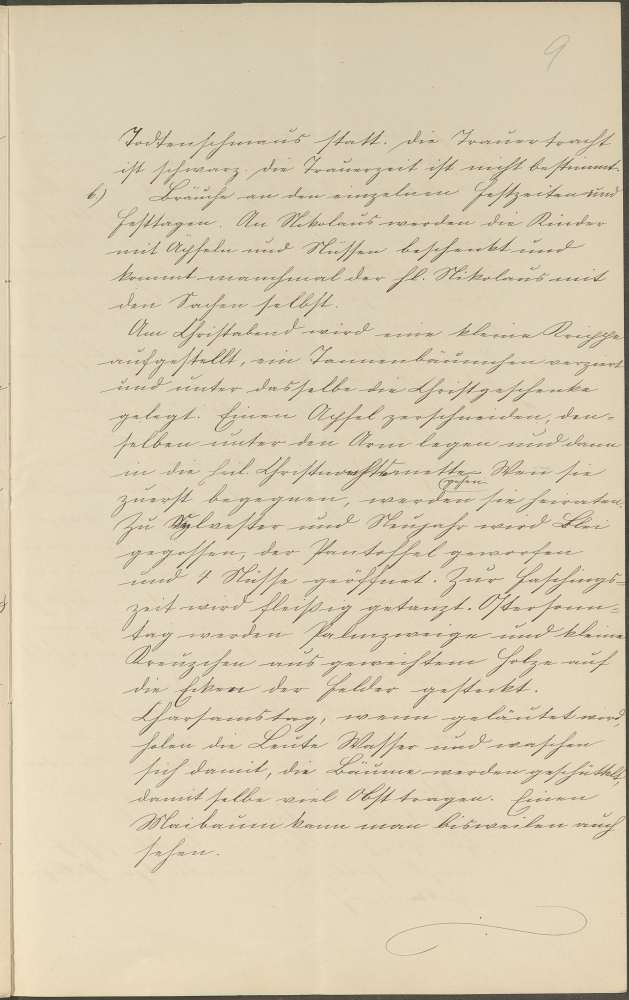 9
Todtenschmaus statt. Die Trauertracht
ist schwarz. Die Trauerzeit ist nicht bestimmt.
6.) Bräuche an den einzelnen Festzeiten und
Festtagen. An Nikolaus werden die Kinder
mit Äpfeln und Nüssen beschenkt und
kommt manchmal der hl. Nikolaus mit
den Sachen selbst.
Am Christabend wird eine kleine Krippe
aufgestellt, ein Tannenbäumchen verziert
und unter dasselbe die Christgeschenke
gelegt. Einen Apfel zerschneiden, den-
selben unter den Arm legen und dann
in die heil. Christmette gehen. Wen sie
zuerst begegnen, werden sie heiraten.
Zu Sylvester und Neujahr wird Blei
gegossen, der Pantoffel geworfen
und 4 Nüsse geöffnet. Zur Faschings-
zeit wird fleißig getanzt. Ostersonn-
tag werden Palmzweige und kleine
Kreuzchen aus geweihtem Holze auf
die Ecken der Felder gesteckt.
Charsamstag, wenn geläutet wird,
holen die Leute Wasser und waschen
sich damit, die Bäume werden geschüttelt,
damit selbe viel Obst tragen. Einen
Maibaum kann man bisweilen auch
sehen.